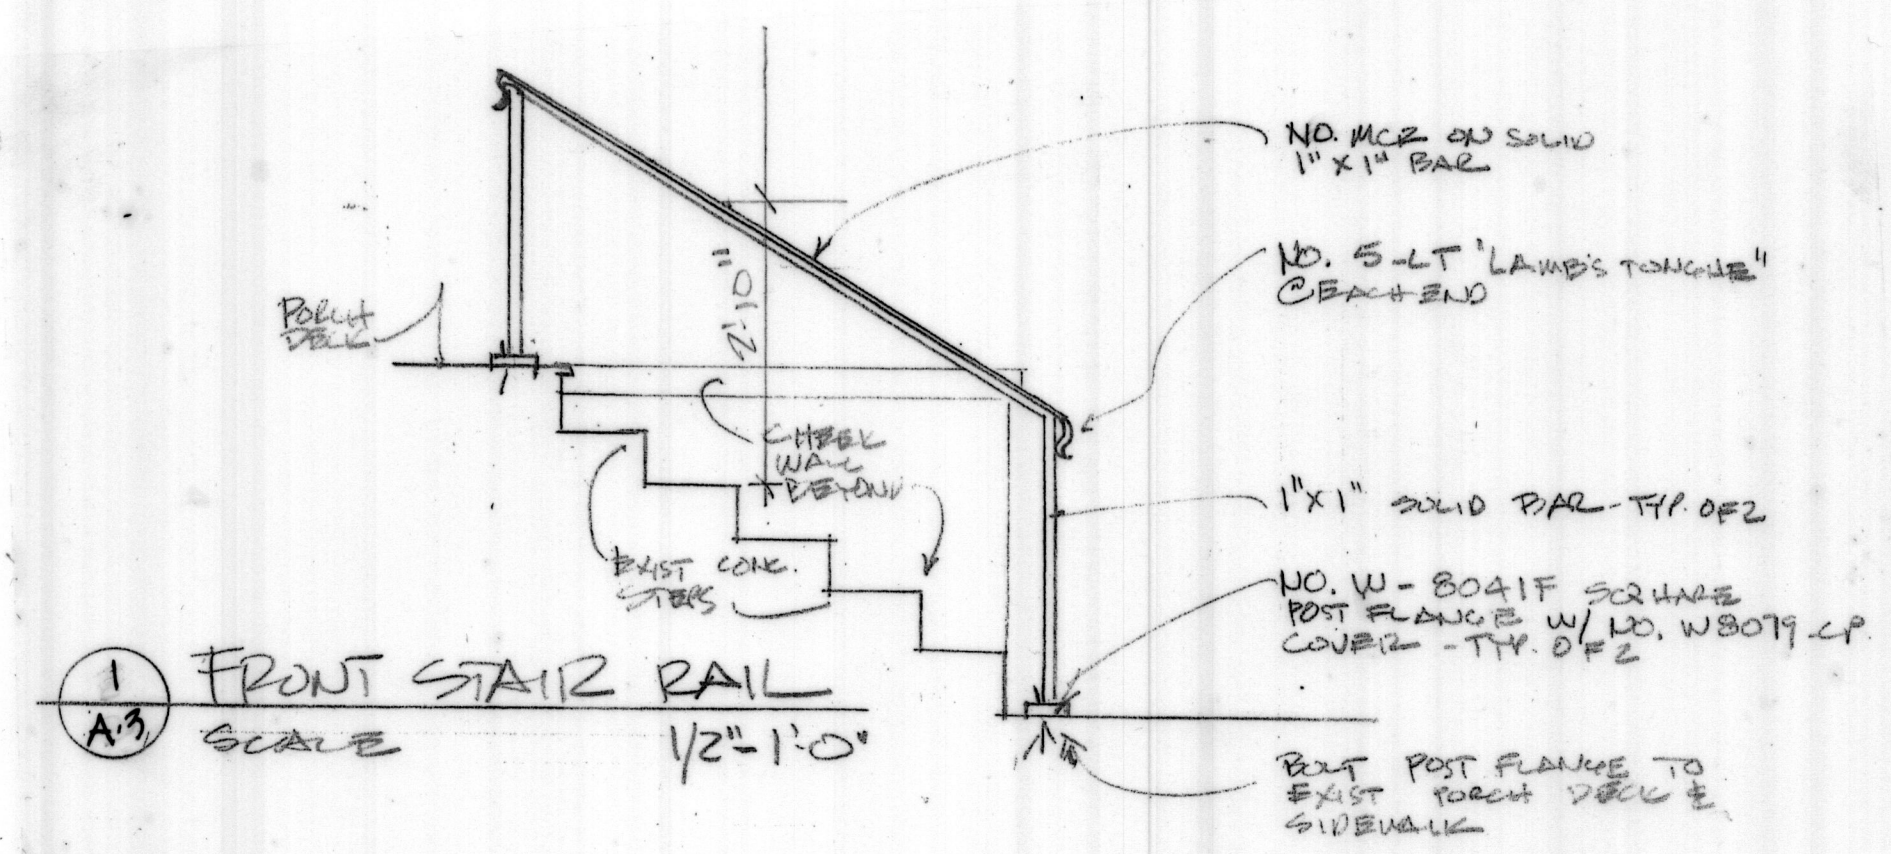 NO. MCR ON SOLID
1" X 1" BAR
NO. 5-LT "LAMB'S TONGUE"
@ EACH END
PORCH
DECK
2'-10"
CHEEK
WALL
BEYOND
1" X 1" SOLID BAR - TYP. OF 2
EXIST CONC.
STEPS
NO. W-8041F SQUARE
POST FLANGE W/ NO. W8079-CP.
COVER - TYP. OF 2
1
A.3
FRONT STAIR RAIL
SCALE 1/2"-1'-0"
BOLT POST FLANGE TO
EXIST PORCH DECK &
SIDEWALK